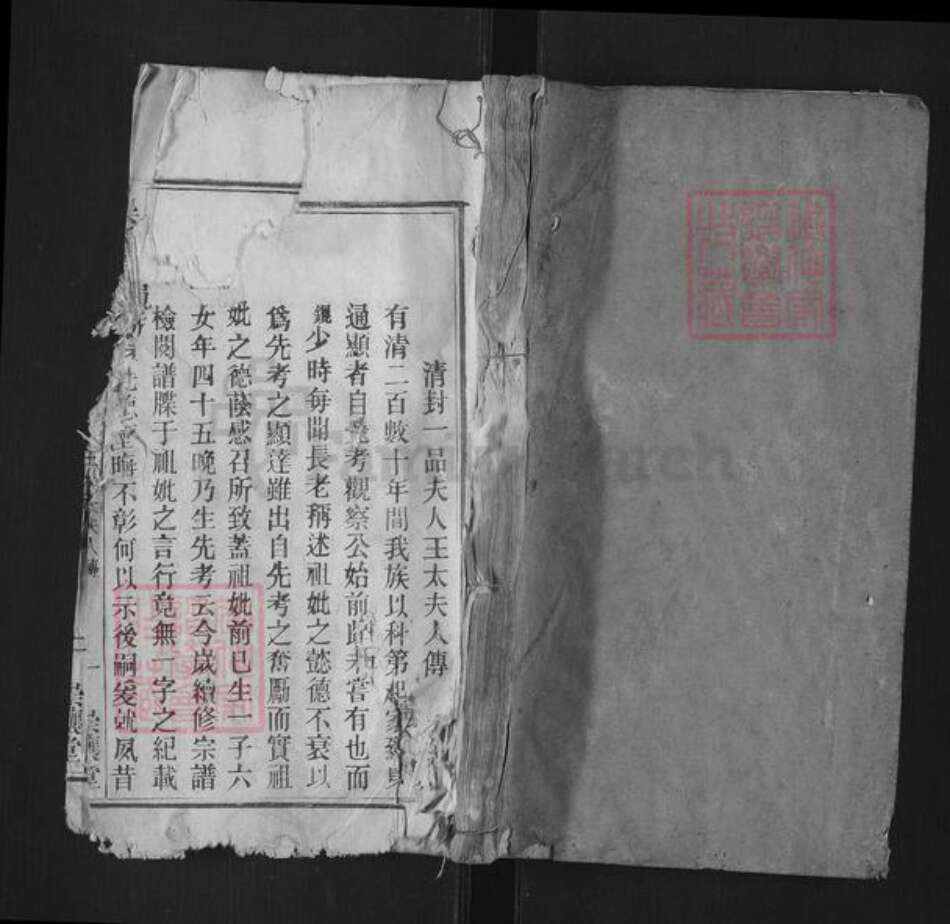 清封一品夫人王太夫人傳
有清二百數十年間我族以科第起家
通顯者自先考觀察公始前此未嘗有也而
錕少時每聞長老稱述祖妣之懿德不衰以
爲先考之顯達雖出自先考之奮勵而實祖
妣之德蔭感召所致蓋祖妣前已生一子六
女年四十五晚乃生先考云今歲續修宗譜
檢閱譜牒于祖妣之言行竟無一字之紀載
晦不彰何以示後嗣爰就夙昔